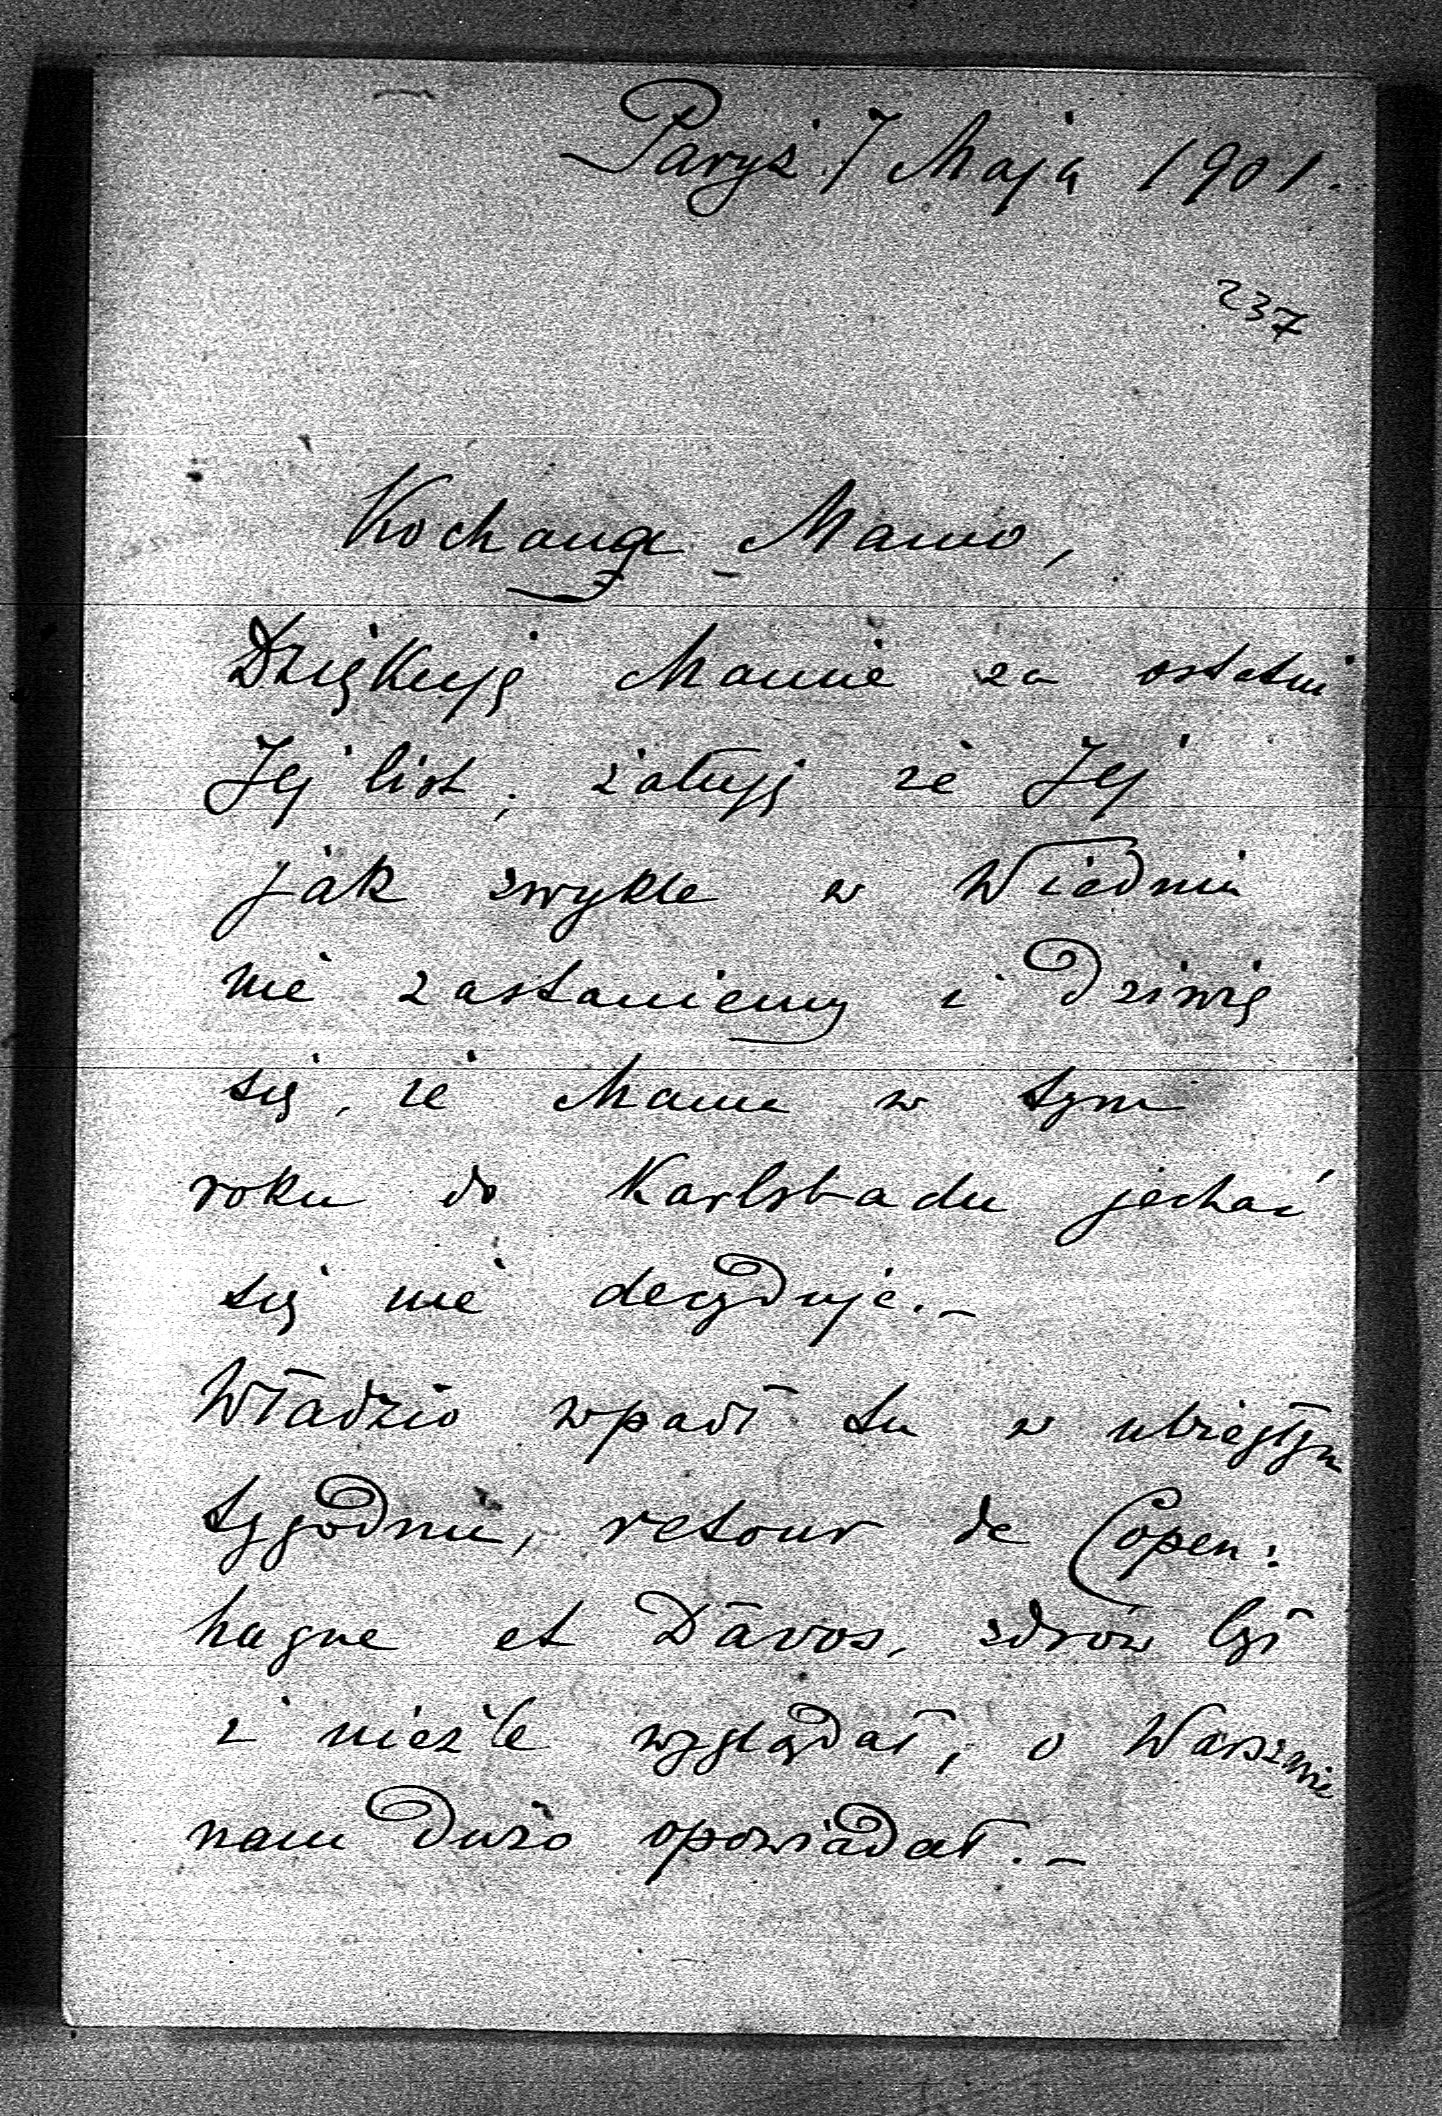 Paryż 7 Maja 1901.
237
Kochana Mamo,
Dziękuję Mamie za ostatni
Jej list, żałuję że Jej
jak zwykle w Wiedniu
nie zastaniemy i dziwię
się, że Mama w tym
roku do Karlsbadu jechać
się nie decyduje. –
Władzio wpadł tu w ubiegłym
tygodniu, retour de Copen:
hague et Davos, zdrów był
i nieźle wyglądał, o Warszawie
nam dużo opowiadał. –